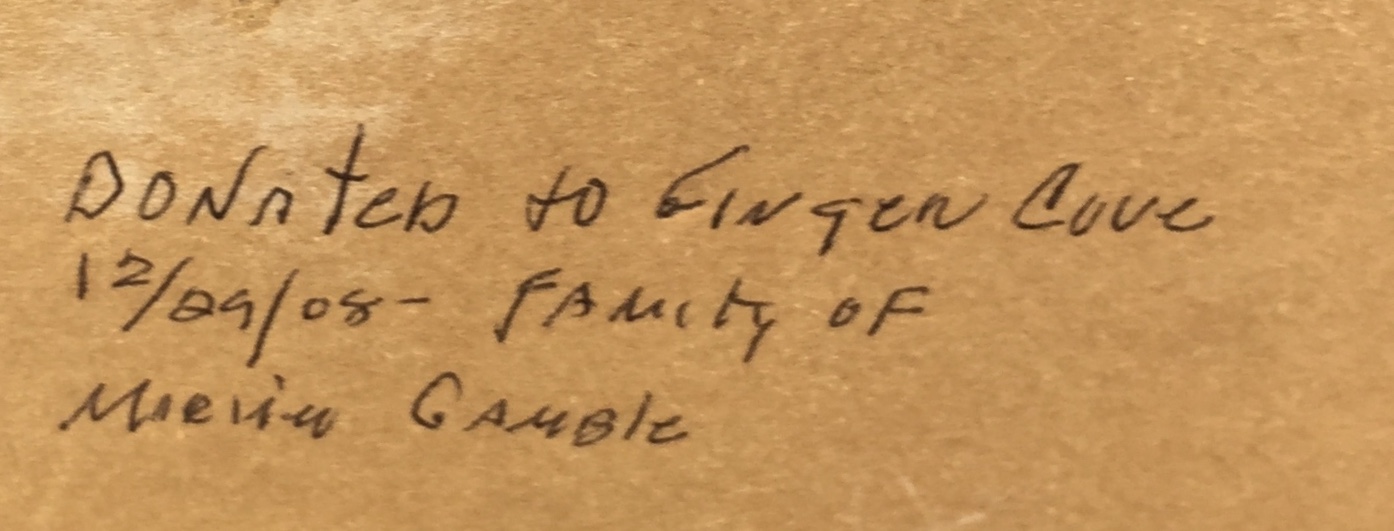 DONATED to GINGER COVE
12/29/08 - FAMILY OF
GAMBLE